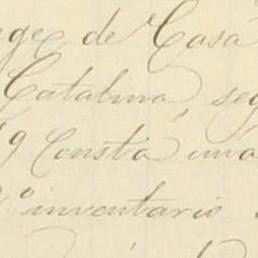 de Casa
Catalina, seg
9 Constta una
inventario